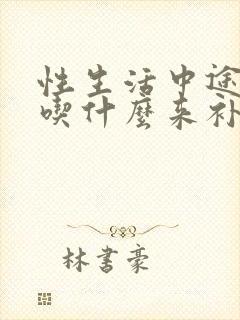 性生活中途
喫什麼來補
林書豪